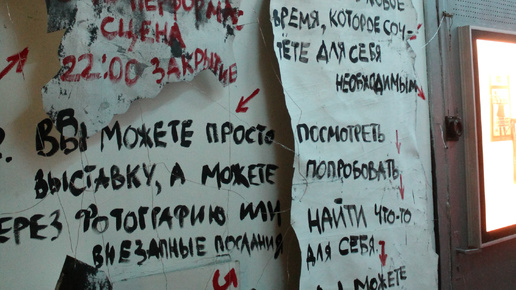 ПЕРФОРМАНС
СЦЕНА
22:00 ЗАКРЫТИЕ
ВЫ МОЖЕТЕ ПРОСТО
ВЫСТАВКУ, А МОЖЕТЕ
ЕРЕЗ ФОТОГРАФИЮ ИЛИ
ВНЕЗАПНЫЕ ПОСЛАНИЯ
5
ВРЕМЯ, КОТОРОЕ СОЧ-
ТЁТЕ ДЛЯ СЕБЯ
НЕОБХОДИМЫМ
ПОСМОТРЕТЬ
ПОПРОБОВАТЬ
НАЙТИ ЧТО-ТО
ДЛЯ СЕБЯ.
МОЖЕТЕ